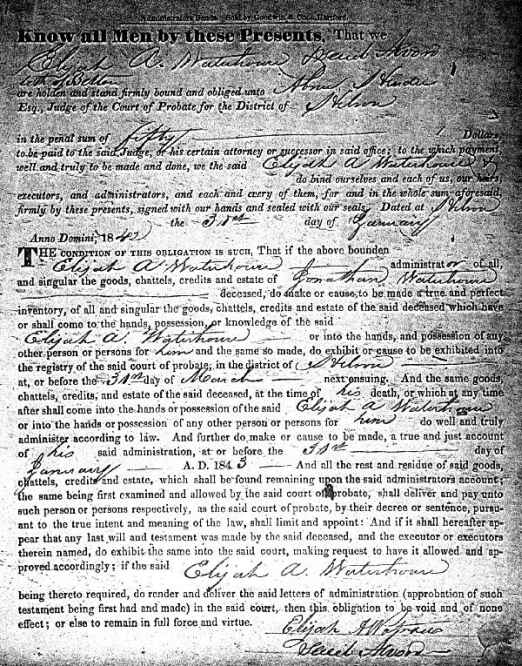 Administrators Bonds. Sold by Goodwin & Co. Hartford.
Know all Men by these Presents, That we
Elijah A. Waterhouse David Avord
both of Bolton
are holden and stand firmly bound and obliged unto Abner
Esq., Judge of the Court of Probate for the District of Hebron
in the penal sum of fifty Dollars
to be paid to the said Judge, or his certain attorney or successor in said office; to the which payment,
well and truly to be made and done, we the said Elijah A Waterhouse &
do bind ourselves and each of us, our heirs,
executors, and administrators, and each and every of them, for and in the whole sum aforesaid,
firmly by these presents, signed with our hands and sealed with our seals. Dated at Hebron
the 31st day of January
Anno Domini, 1842
THE CONDITION OF THIS OBLIGATION IS SUCH, That if the above bounden
Elijah A. Waterhouse administrator of all,
and singular the goods, chattels, credits and estate of Jonathan Waterhouse
deceased, do make or cause to be made a true and perfect
inventory, of all and singular the goods, chattels, credits and estate of the said deceased which have
or shall come to the hands, possession, or knowledge of the said
Elijah A. Waterhouse or into the hands, and possession of any
other person or persons for him and the same so made, do exhibit or cause to be exhibited into
the registry of the said court of probate, in the district of Hebron
at, or before the 31st day of March next ensuing. And the same goods,
chattels, credits, and estate of the said deceased, at the time of his death, or which at any time
after shall come into the hands or possession of the said Elijah A Waterhouse
or into the hands or possession of any other person or persons for him do well and truly
administer according to law. And further do make or cause to be made, a true and just account
of his said administration, at or before the 31st day of
January A. D. 1843 And all the rest and residue of said goods,
chattels, credits and estate, which shall be found remaining upon the said administrators account;
the same being first examined and allowed by the said court of probate, shall deliver and pay unto
such person or persons respectively, as the said court of probate, by their decree or sentence, pursu-
ant to the true intent and meaning of the law, shall limit and appoint: And if it shall hereafter ap-
pear that any last will and testament was made by the said deceased, and the executor or executors
therein named, do exhibit the same into the said court, making request to have it allowed and ap-
proved accordingly; if the said Elijah A. Waterhouse
being thereto required, do render and deliver the said letters of administration (approbation of such
testament being first had and made) in the said court, then this obligation to be void and of none
effect; or else to remain in full force and virtue.
Elijah A
David Avord